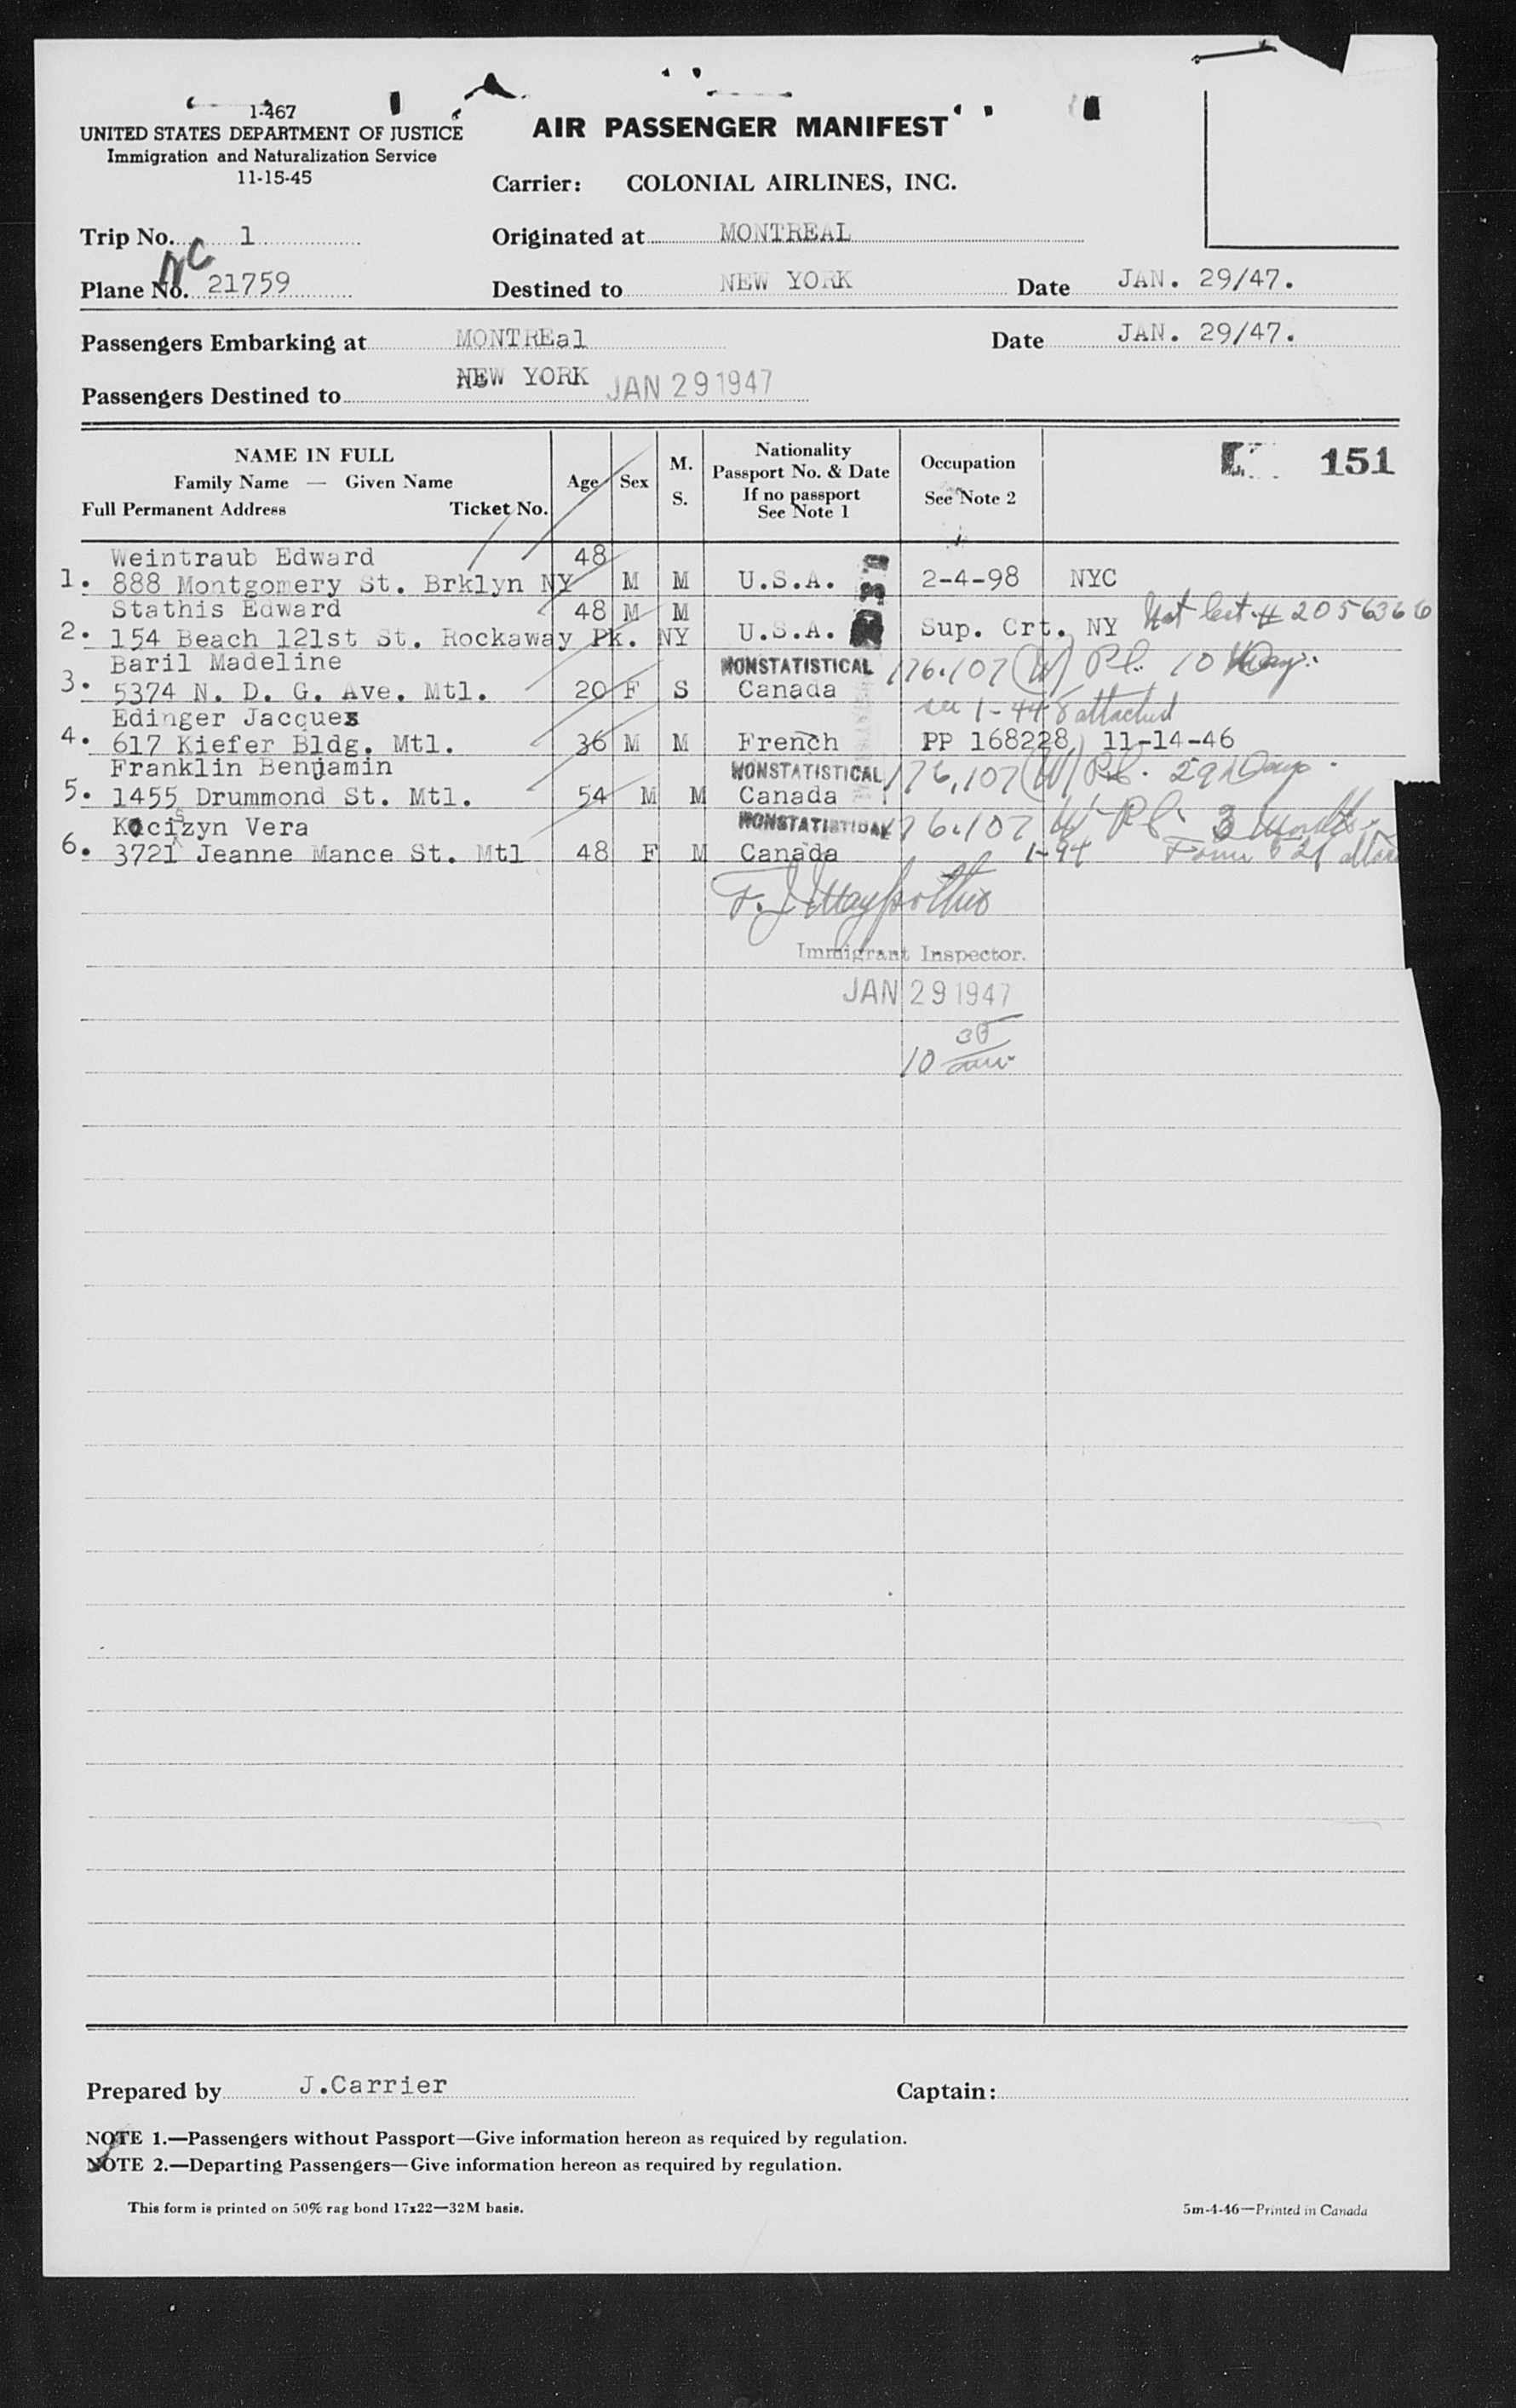 1-467
UNITED STATES DEPARTMENT OF JUSTICE
Immigration and Naturalization Service
11-15-45
AIR PASSENGER MANIFEST
Carrier: COLONIAL AIRLINES, INC.
Trip No. 1
Originated at MONTREAL
NC
Plane No. 21759
Destined to NEW YORK
Date JAN. 29/47.
Passengers Embarking at MONTREal
Date JAN. 29/47.
Passengers Destined to NEW YORK JAN 29 1947
NAME IN FULL
Family Name — Given Name
Full Permanent Address Ticket No.
Age
Sex
M.
S.
Nationality
Passport No. & Date
If no passport
See Note 1
Occupation
See Note 2
151
Weintraub Edward 48
1. 888 Montgomery St. Brklyn NY M M U.S.A. 2-4-98 NYC
Stathis Edward 48 M M Nat Cert # 2056366
2. 154 Beach 121st St. Rockaway Pk. NY U.S.A. Sup. Crt. NY
Baril Madeline NONSTATISTICAL 176.107 (W) Pl. 10 Days
3. 5374 N. D. G. Ave. Mtl. 20 F S Canada
see 1-448 attached
Edinger Jacques
4. 617 Kiefer Bldg. Mtl. 36 M M French PP 168228 11-14-46
Franklin Benjamin NONSTATISTICAL 176.107 (W) Pl. 29 Days
5. 1455 Drummond St. Mtl. 54 M M Canada
Vera NONSTATISTICAL 176.107 W Pl. 3 Months
6. 3721 Jeanne Mance St. Mtl 48 F M Canada 1-94 Form
F. J.
Immigrant Inspector.
JAN 29 1947
10 30 am
Prepared by J.Carrier
Captain:
NOTE 1.—Passengers without Passport—Give information hereon as required by regulation.
NOTE 2.—Departing Passengers—Give information hereon as required by regulation.
This form is printed on 50% rag bond 17x22—32M basis.
5m-4-46—Printed in Canada